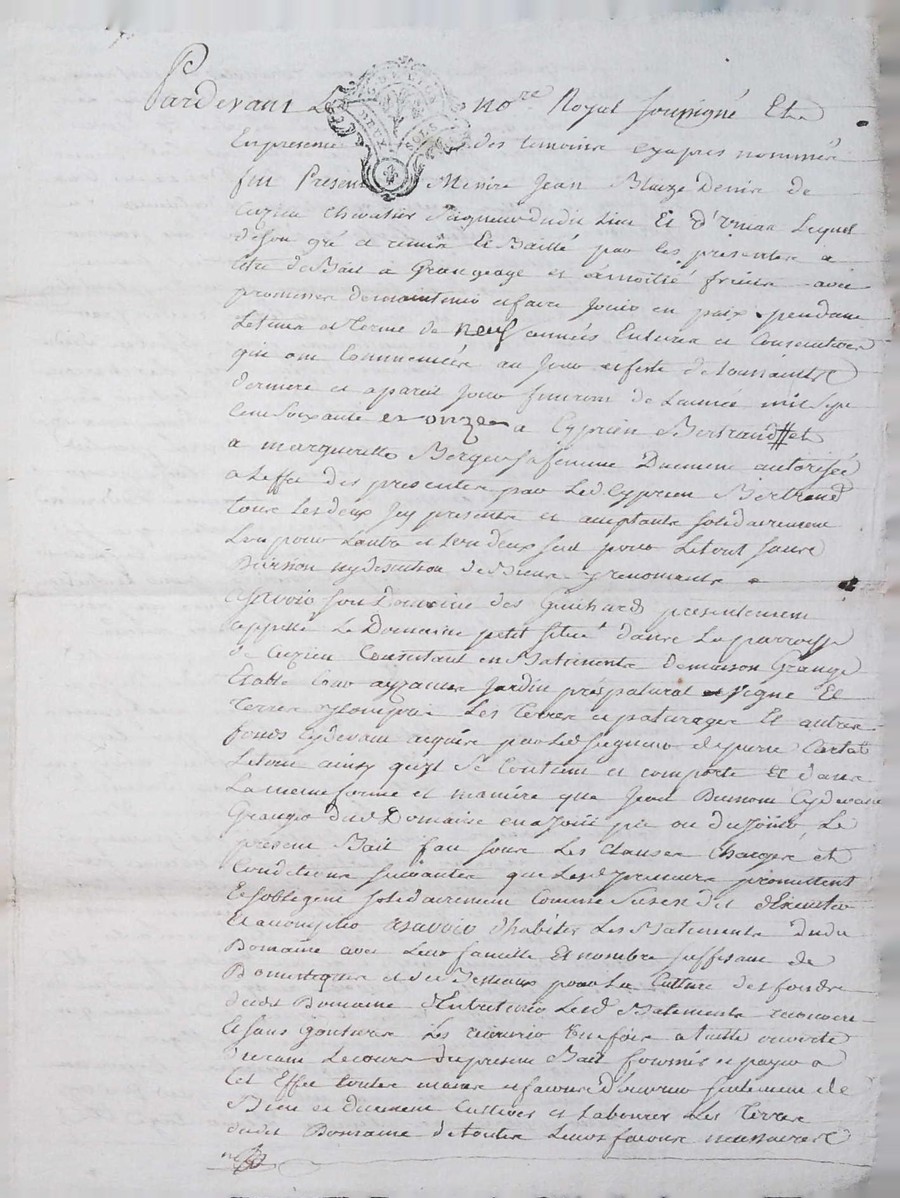 Pardevant Le no.re Royal soussigné Et
En presence des temoins cyapres nommés
fut Present Messire Jean Blaize Denis de
Cuzieu Chevalier Seigneur dudit Lieu Et d'Unias Lequel
de son gré a remis Et Baillé par les presentes a
titre de Bail a Grangeage et a moitié fruits avec
promesses de maintenir et faire Jouir en paix pendant
Le tems et terme de neuf années Entieres et Consecutives
qui ont Commencées au Jour et feste de toussaints
derniere et a pareil Jour finiront de L'année mil Sept
Cent Soixante et onze a Cyprien Bertrand # et
a margueritte Berger sa femme Duement autorisée
a L'effet des presentes par Led Cyprien Bertrand
tous Les deux Jcy presents et acceptants solidairement
L'un pour L'autre et L'un deux seul pour Le tout sans
Division ny discution de Biens y renonçants
asavoir son Domaine des Guichards presentement
appellé Le Domaine petit situé dans La parroisse
de Cuzieu Consistant en Batiments de maison Grange
Etable Cour ayzances Jardin prés patural et vigne Et
Terres y Compris Les Terres et paturages Et autres
fonds Cydevant acquis par Led Seigneur de pierre Cartal
Le tout ainsy qu'il Se Contient et comporte et dans
La meme forme et manière que Jean Dumont Cydevant
Granger dud Domaine en a Joüi pû ou du Joüir, Le
present Bail fait sous Les Clauses Charges et
Conditions suivantes que Lesd preneurs promettent
Et s'obligent solidairement Comme Susest dit d'Executer
Et accomplir asavoir d'habiter Les Batiments dudit
Domaine avec Leur famille Et nombre suffisant de
Domestiques et de Bestiaux pour La Culture des fonds
dudit Domaine d'Entretenir Lesd Batiments recouverts
Et sans goutieres Les recourir une fois a tuille ouverte
durant Le cours du present Bail fournir et payer a
Cet Effet toutes mains et façons d'ouvriers
Bien et duement Cultiver et Labourer Les Terres
dudit Domaine de toutes Leurs façons necessaires